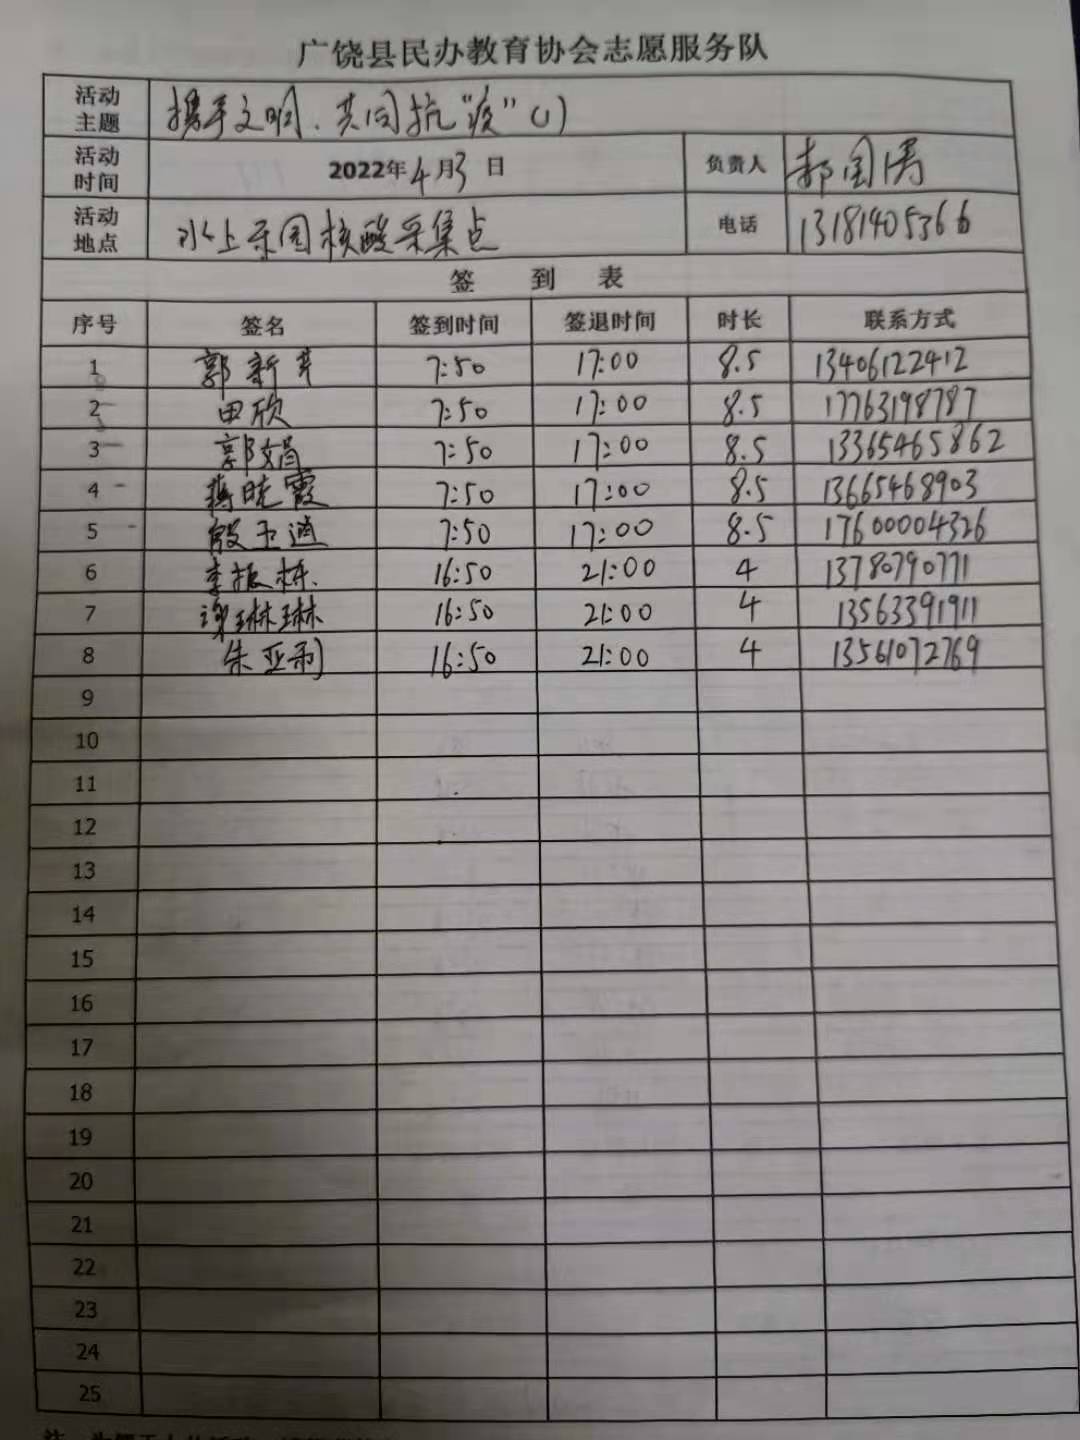 广饶县民办教育协会志愿服务队
活动主题 携手文明、共同抗“疫”(1)
活动时间 2022年4月3日 负责人 郝国涛
活动地点 水上乐园核酸采集点 电话 13181405366
签 到 表
序号 签名 签到时间 签退时间 时长 联系方式
1 郭新芹 7:50 17:00 8.5 13406122412
2 田欣 7:50 17:00 8.5 17763198787
3 郭娟 7:50 17:00 8.5 13365465862
4 蒋晓霞 7:50 17:00 8.5 13665468903
5 殷玉涵 7:50 17:00 8.5 17600004326
6 李振栋 16:50 21:00 4 13780790771
7 谢琳琳 16:50 21:00 4 13563391911
8 朱亚利 16:50 21:00 4 13561072769
9
10
11
12
13
14
15
16
17
18
19
20
21
22
23
24
25